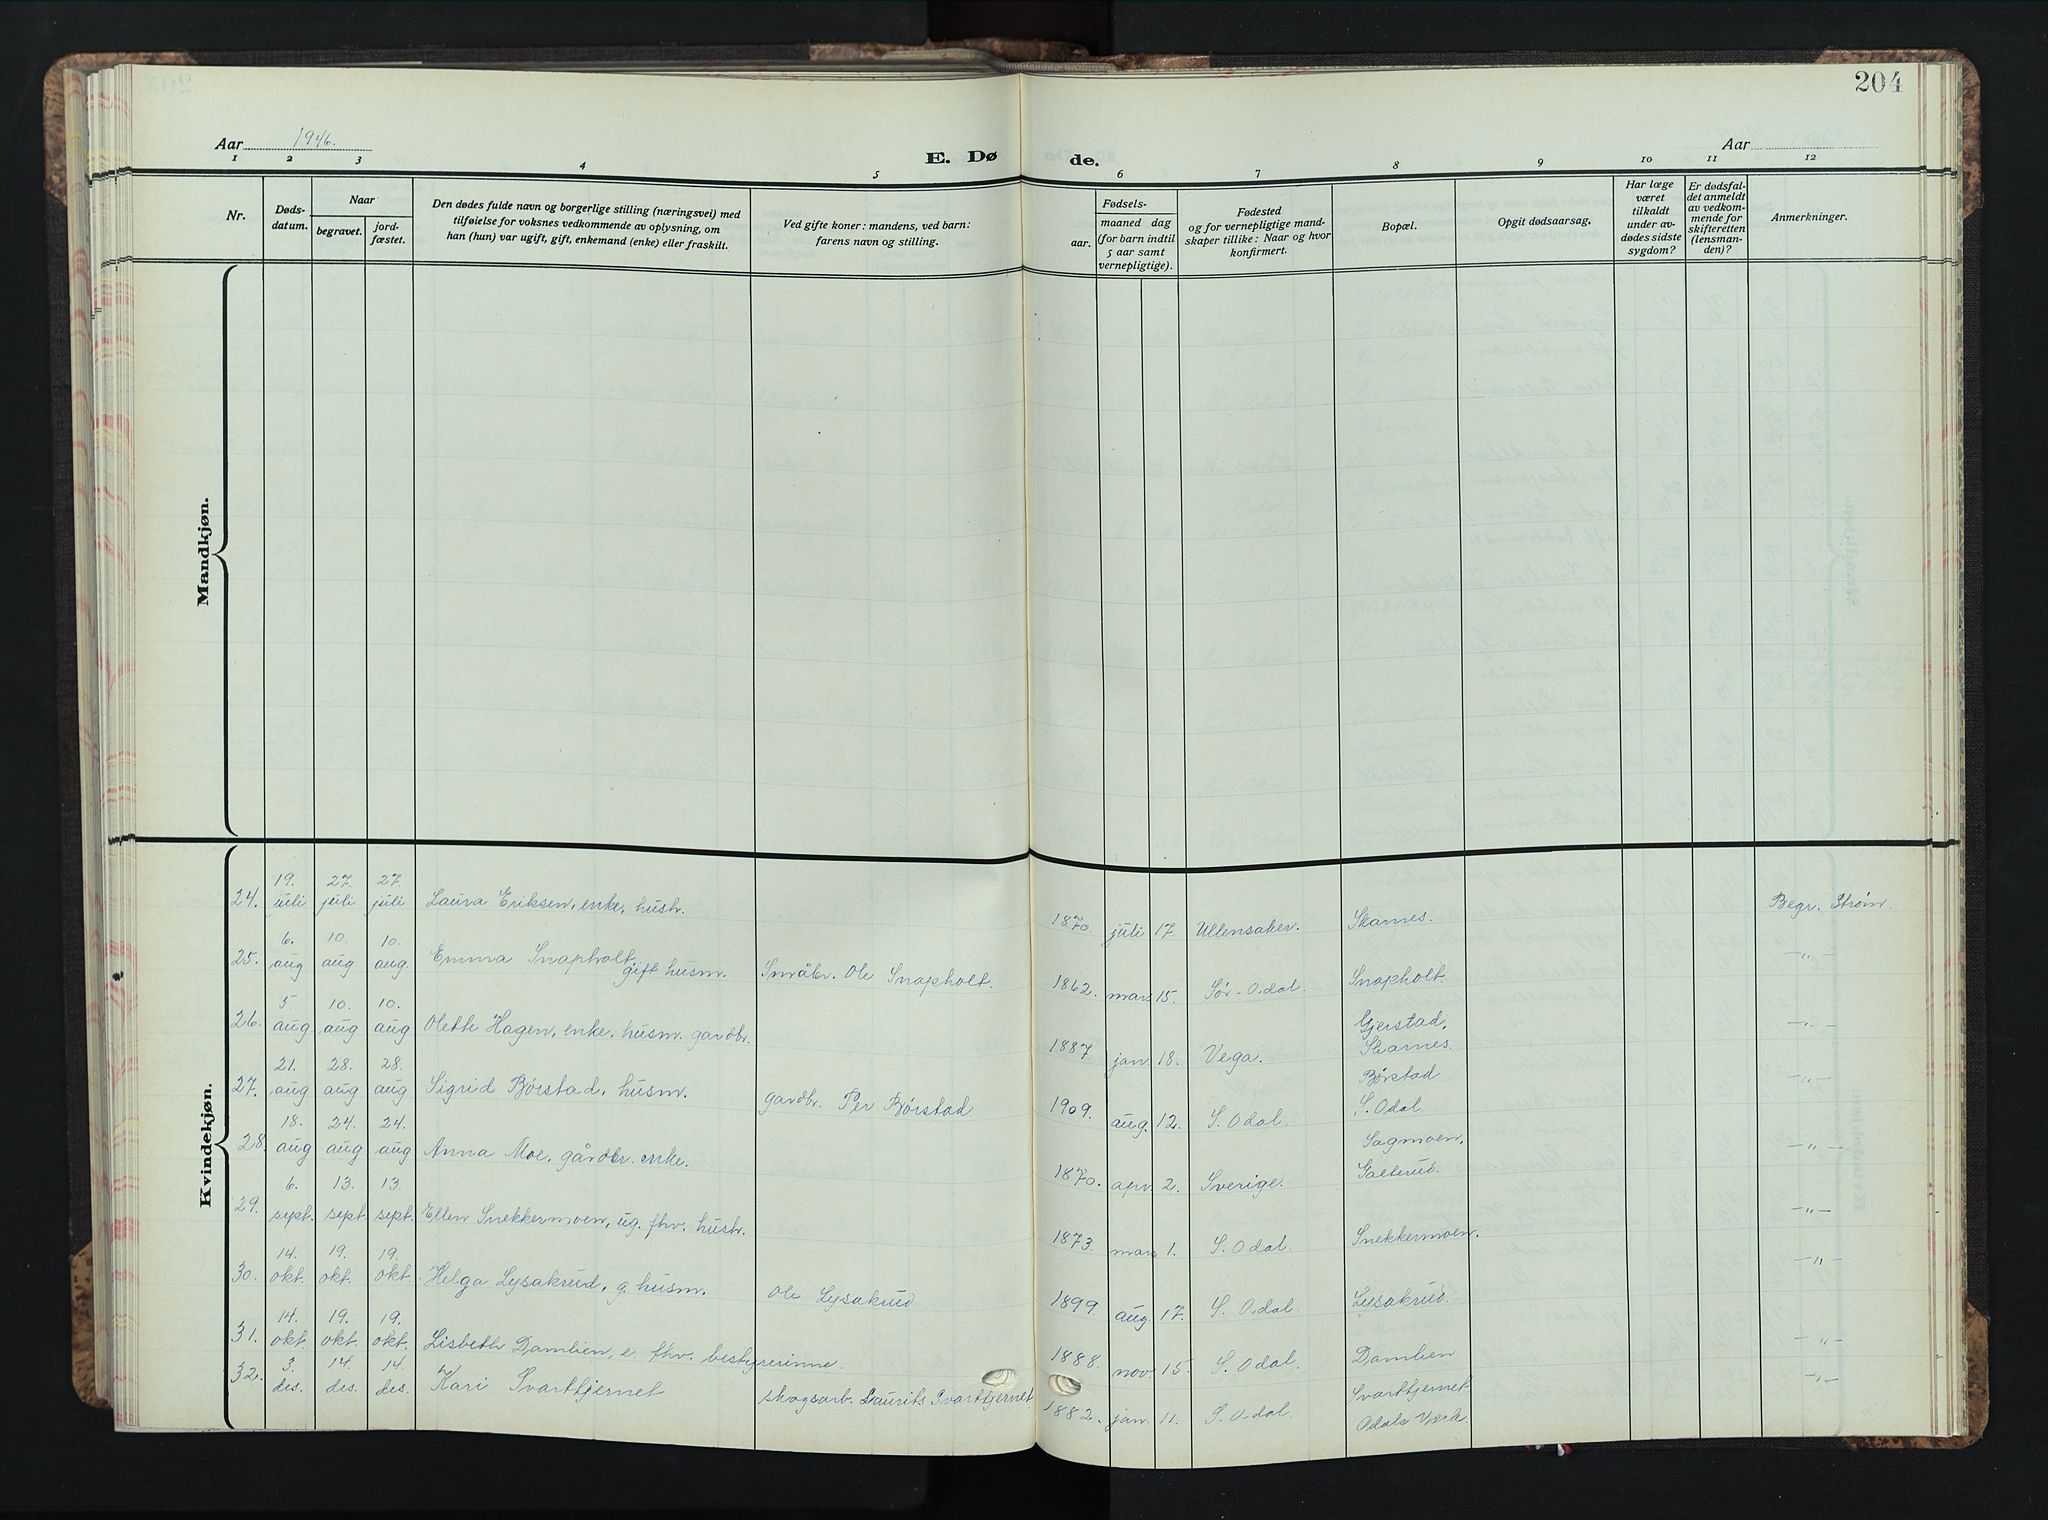 204
Aar 1946.
Aar
E. Dø de.
1 2 3 4 5 6 7 8 9 10 11 12
Nr.
Døds-
datum.
Naar
begravet.
jord-
fæstet.
Den dødes fulde navn og borgerlige stilling (næringsvei) med
tilføielse for voksnes vedkommende av oplysning, om
han (hun) var ugift, gift, enkemand (enke) eller fraskilt.
Ved gifte koner: mandens, ved barn:
farens navn og stilling.
Fødsels-
aar.
maaned dag
(for barn indtil
5 aar samt
vernepligtige).
Fødested
og for vernepligtige mand-
skaper tillike: Naar og hvor
konfirmert.
Bopæl.
Opgit dødsaarsag.
Har læge
været
tilkaldt
under av-
dødes sidste
sygdom?
Er dødsfal-
det anmeldt
av vedkom-
mende for
skifteretten
(lensman-
den)?
Anmerkninger.
Mandkjøn.
Kvindekjøn.
19. 27. 27.
24. juli juli juli Laura Eriksen, enke, hustr. 1870. juli 17. Ullensaker. Skarnes. Begr. Strøm.
6. 10. 10.
25. aug aug aug. Emma Snapholt, gift husm. Småbr. Ole Snapholt. 1862. mars 15. Sør-Odal. Snapholt. -"-
5. 10. 10.
26. aug aug aug Olette Hagen, enke, husm. gardbr. 1887. jan. 18. Vega. Gjerstad, -"-
Skarnes.
21. 28. 28.
27. aug aug aug Sigrid Børstad, husm. gardbr. Per Børstad 1909. aug. 12. S. Odal. Børstad -"-
S. Odal
18. 24. 24.
28. aug aug aug Anna Moe, gårdbr. enke. 1870. apr. 2. Sverige. Sagmoen, -"-
Galterud.
6. 13. 13.
29. sept. sept. sept. Ellen Snekkermoen, ug. fhv. hustr. 1873. mars 1. S. Odal. Snekkermoen. -"-
14. 19. 19.
30. okt. okt. okt. Helga Lysakrud, g. husm. Ole Lysakrud 1899 aug. 17. S. Odal. Lysakrud. -"-
14. 19. 19.
31. okt. okt. okt. Lisbeth Damlien, e. fhv. bestyrerinne. 1888. nov. 15. S. Odal. Damlien -"-
3. 14. 14.
32. des. des. des. Kari Svarttjernet skogsarb. Laurits Svarttjernet 1882. jan. 11. S. Odal. Svarttjernet -"-
Odals Verk.